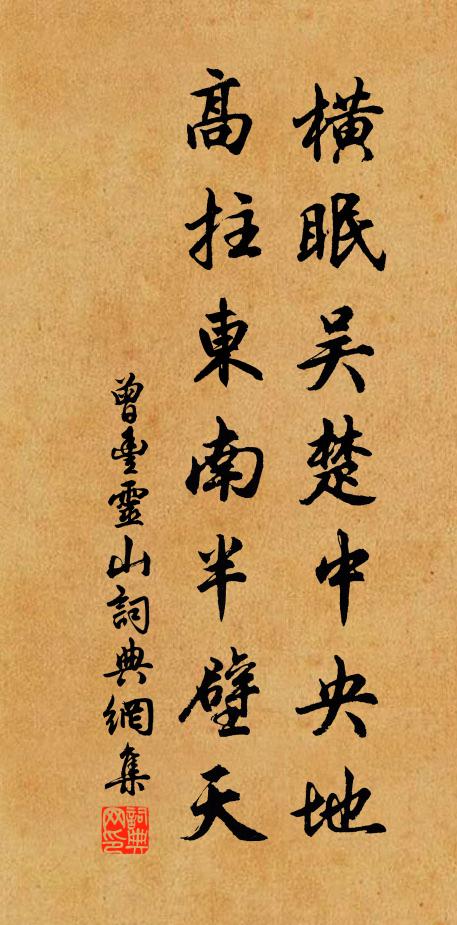 橫眠吳楚中央地
高拄東南半壁天
曾豐靈山詞典網集
詞典網印